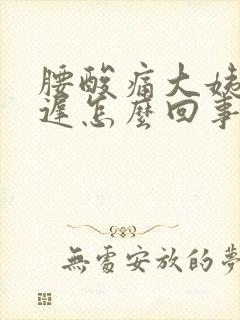 腰酸痛大姨
遲怎麼回事
無處安放的夢